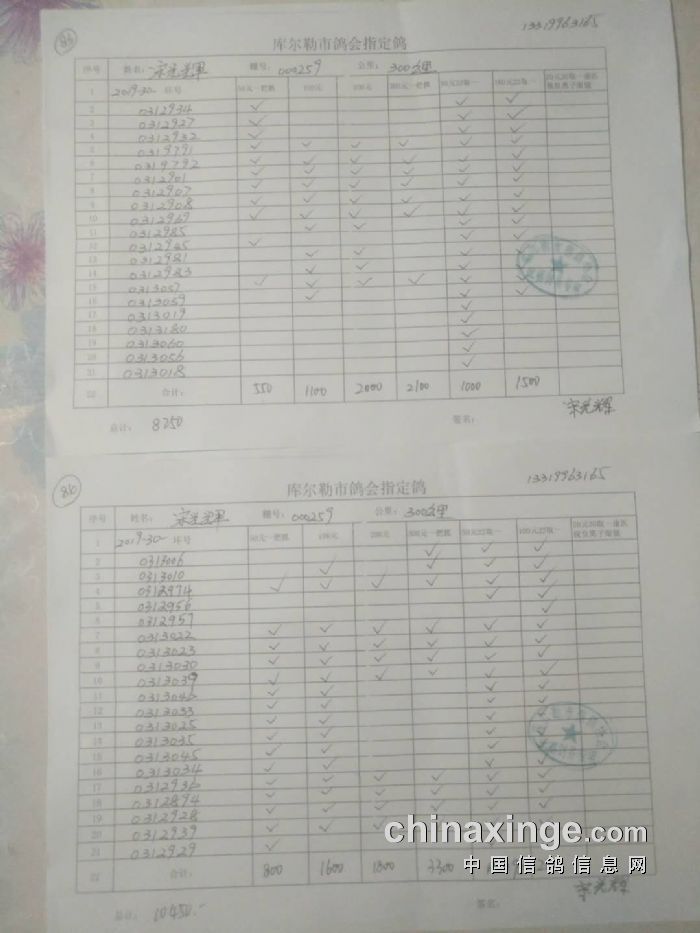 86
库尔勒市鸽会指定鸽
13319963165
序号 姓名: 宋光辉 棚号: 000259 公里: 300公里
1 2019-30- 环号 50元一把抓 100元
2 0312934 ✓ ✓ ✓
3 0312927 ✓ ✓ ✓
4 0312932 ✓ ✓ ✓
5 0319791 ✓ ✓ ✓ ✓ ✓ ✓
6 0319792 ✓ ✓ ✓ ✓ ✓ ✓
7 0312901 ✓ ✓ ✓ ✓ ✓ ✓
8 0312907 ✓ ✓ ✓ ✓ ✓ ✓
9 0312908 ✓ ✓ ✓ ✓ ✓ ✓
10 0312969 ✓ ✓ ✓ ✓ ✓ ✓
11 0312985 ✓ ✓ ✓ ✓
12 0312925 ✓
13 0312981 ✓ ✓
14 0312983 ✓ ✓
15 0313057 ✓ ✓ ✓ ✓
16 0313059 ✓
17 0313019 ✓
18 0313180 ✓
19 0313060 ✓
20 0313056 ✓
21 0313018 ✓
22 合计: 550 1100 2000 2100 1000 1500
总计: 8250 签名: 宋光辉
86
库尔勒市鸽会指定鸽
13319963165
序号 姓名: 宋光辉 棚号: 000259 公里: 300公里
1 2019-30- 环号 50元一把抓 100元 200元 300元一把抓 50元22取一 100元22取一
2 0313006
3 0313010
4 0312974
5 0312956
6 0312957
7 0313022
8 0313023
9 0313030
10 0313039
11 0313046
12 0313033
13 0313025
14 0313035
15 0313045
16 0313034
17 0312936
18 0312894
19 0312928
20 0312939
21 0312929
22 合计: 800 1600 1800 3300
总计: 10450.- 签名: 宋光辉
chinaxinge.com
中国信鸽信息网